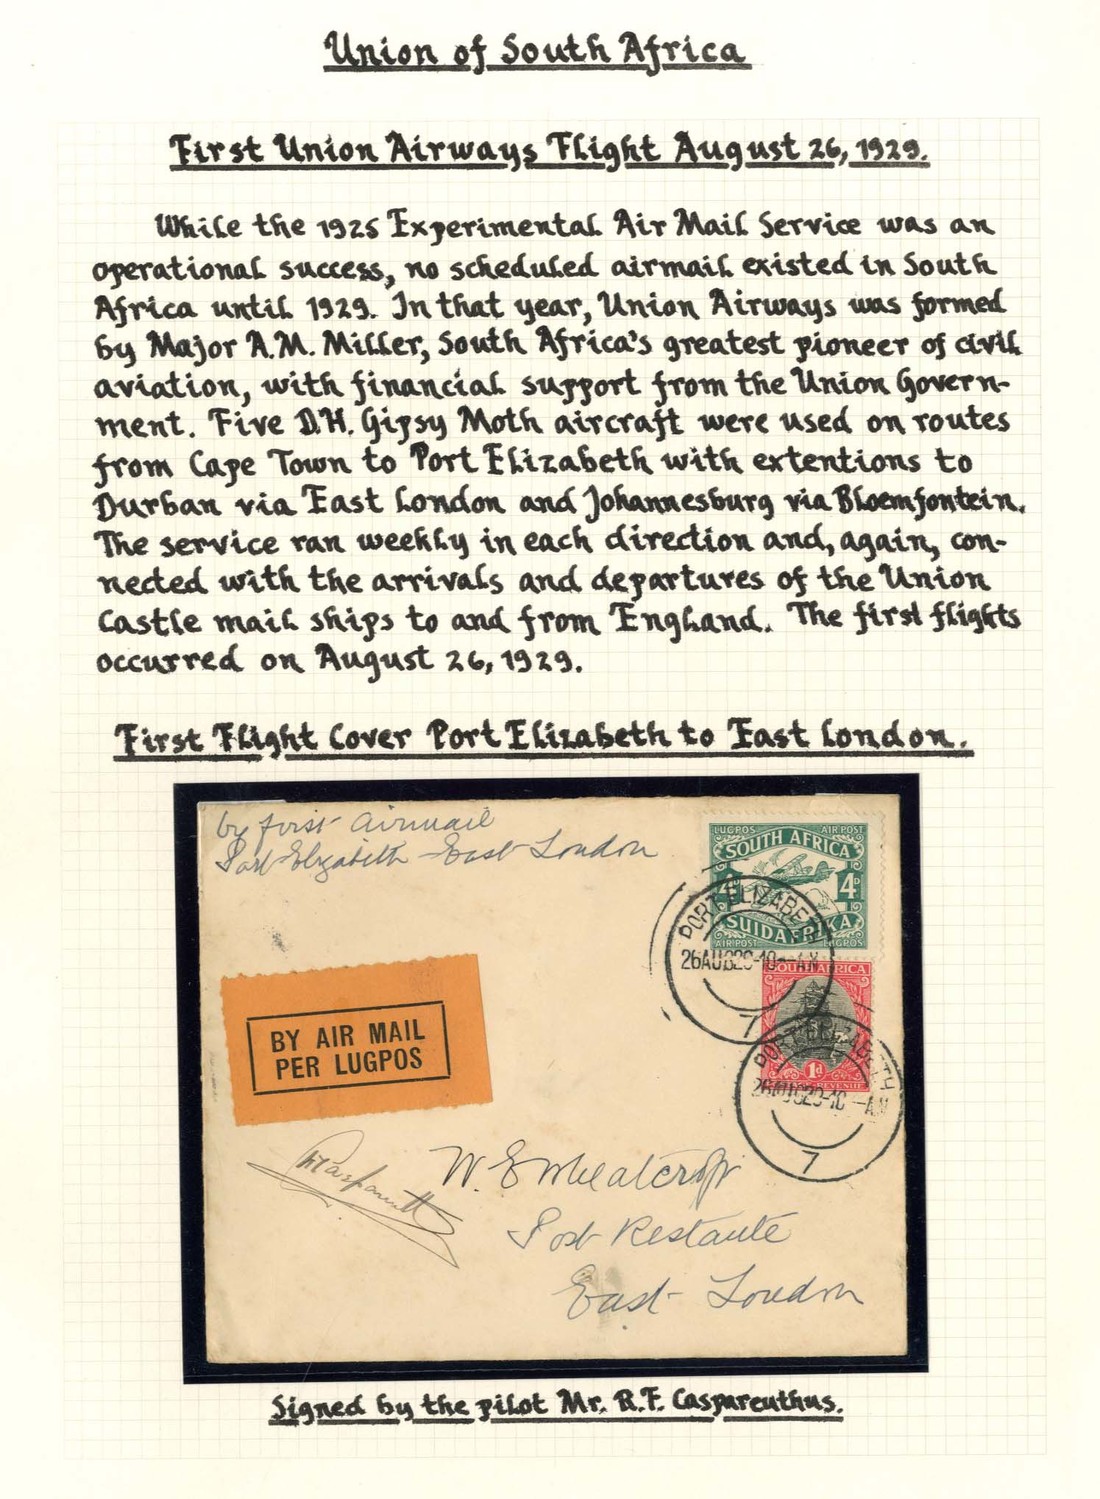 Union of South Africa
First Union Airways Flight August 26, 1929.
While the 1925 Experimental Air Mail Service was an
operational success, no scheduled airmail existed in South
Africa until 1929. In that year, Union Airways was formed
by Major A.M. Miller, South Africa's greatest pioneer of civil
aviation, with financial support from the Union Govern-
ment. Five D.H. Gipsy Moth aircraft were used on routes
from Cape Town to Port Elizabeth with extentions to
Durban via East London and Johannesburg via Bloemfontein.
The service ran weekly in each direction and, again, con-
nected with the arrivals and departures of the Union
Castle mail ships to and from England. The first flights
occurred on August 26, 1929.
First Flight Cover Port Elizabeth to East London.
by first airmail
Port Elizabeth - East London
LUGPOS AIR POST
SOUTH AFRICA
4D 4D
SUIDAFRIKA
AIR POST LUGPOS
PORT ELIZABETH
26AUG29-10--AM
7
SOUTH AFRICA
1d
REVENUE
PORT ELIZABETH
26AUG29-10--AM
7
BY AIR MAIL
PER LUGPOS
W. E. Wheatcroft
Post Restante
East London
Signed by the pilot Mr. R.F. Caspareuthus.